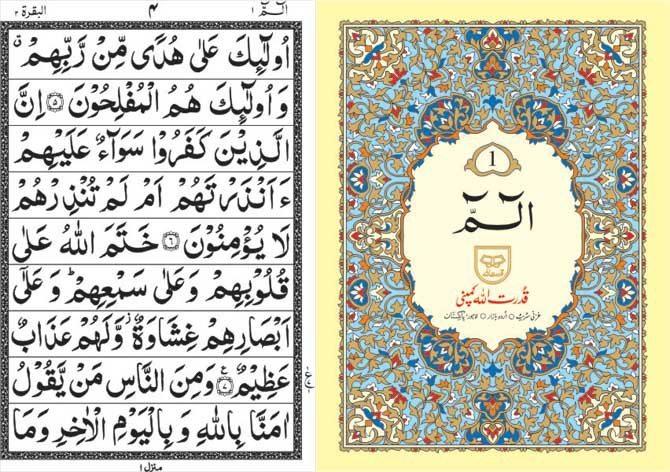 البقرة ٢
٤
الٓمّٓ ١
اُولٰٓئِكَ عَلٰى هُدًى مِّنْ رَّبِّهِمْ ۗ
وَ اُولٰٓئِكَ هُمُ الْمُفْلِحُوْنَ ۝۵ اِنَّ
الَّذِيْنَ كَفَرُوْا سَوَآءٌ عَلَيْهِمْ
ءَاَنْذَرْتَهُمْ اَمْ لَمْ تُنْذِرْهُمْ
لَا يُؤْمِنُوْنَ ۝۶ خَتَمَ اللّٰهُ عَلٰى
قُلُوْبِهِمْ وَعَلٰى سَمْعِهِمْ ؕ وَ عَلٰٓى
اَبْصَارِهِمْ غِشَاوَةٌ ز وَّلَهُمْ عَذَابٌ
عَظِيْمٌ ۝۷ ع وَمِنَ النَّاسِ مَنْ يَّقُوْلُ
اٰمَنَّا بِاللّٰهِ وَ بِالْيَوْمِ الْاٰخِرِ وَمَا
منزل ١
1
الٓمّٓ
قدرت اللہ
قُدرت اللہ کمپنی
غزنی سٹریٹ ○ اُردو بازار ○ لاہور پاکستان